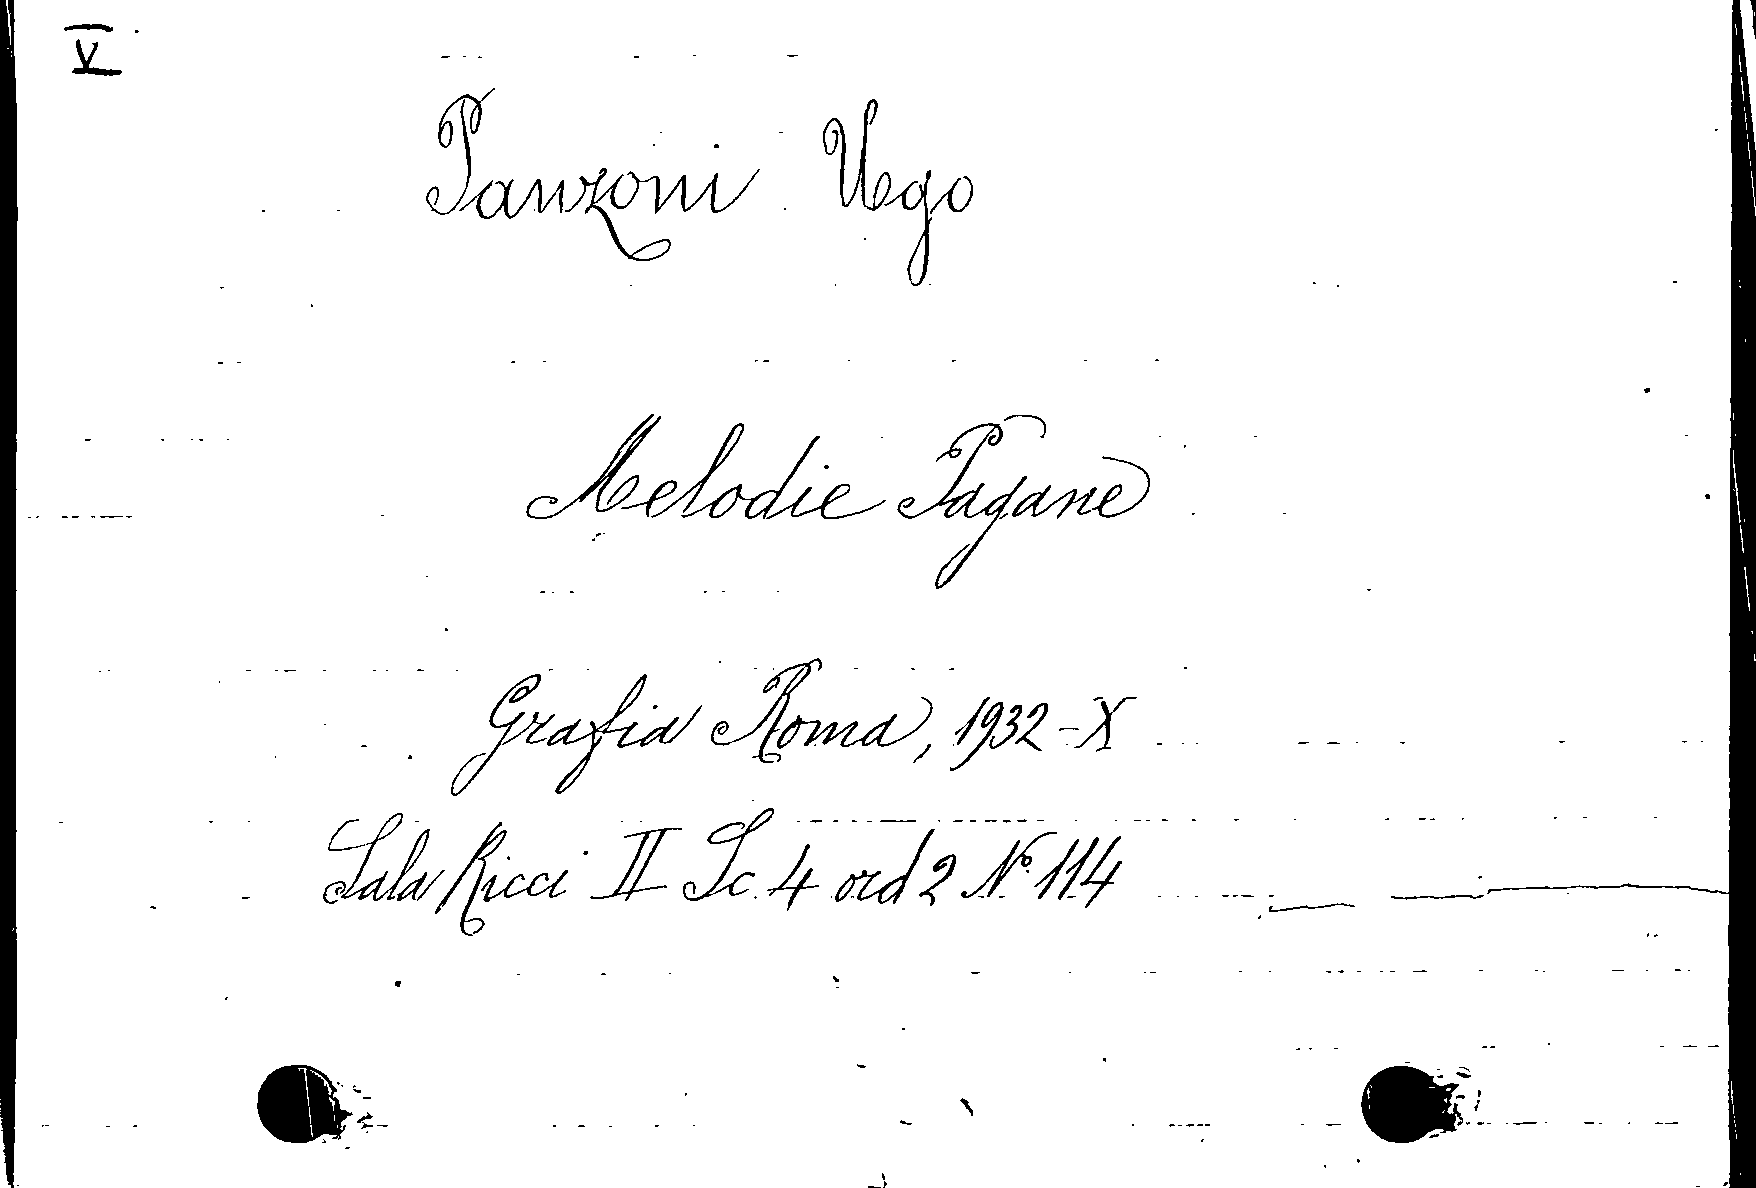 V
Panzoni Ugo
Melodie Pagane
Grafia Roma, 1932-X
Sala Ricci II Sc. 4 ord 2 N° 114